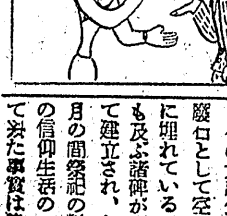 廢石として空
に埋れている
も及ぶ諸碑が
て建立され、
月の間祭祀の
の信仰生活の
て來た事實は